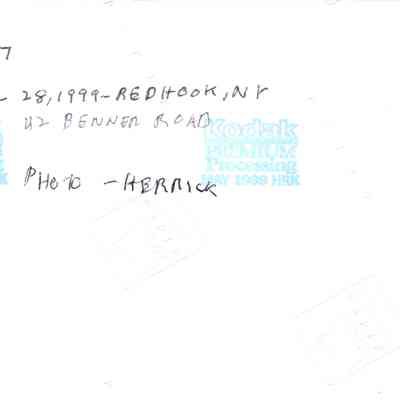 7
- 28, 1999 - RED HOOK, NY
42 BENNER ROAD
Kodak
Processing
MAY 1999 HRK
PHOTO - HERRICK